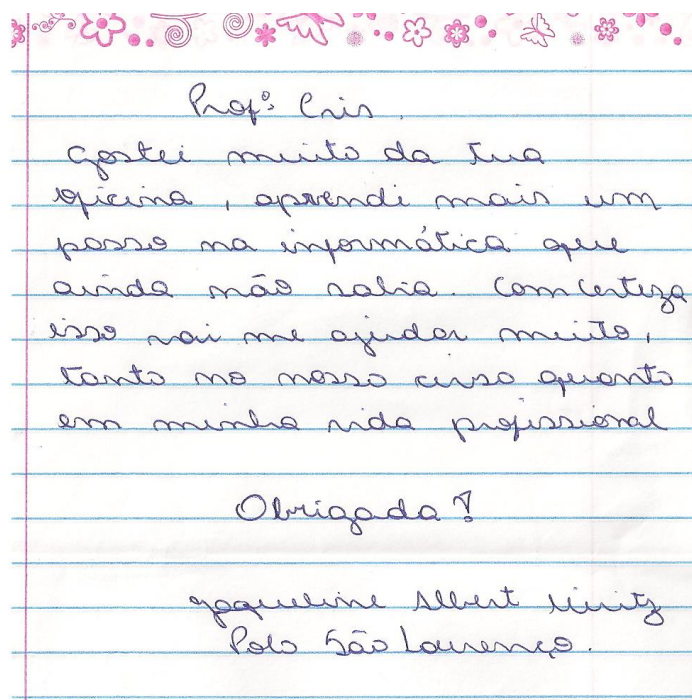 Profª Cris,
Gostei muito da tua
oficina, aprendi mais um
passo na informática que
ainda não sabia. Com certeza
isso vai me ajudar muito,
tanto no nosso curso quanto
em minha vida profissional
Obrigada!
Jaqueline Albert
Polo São Lourenço.